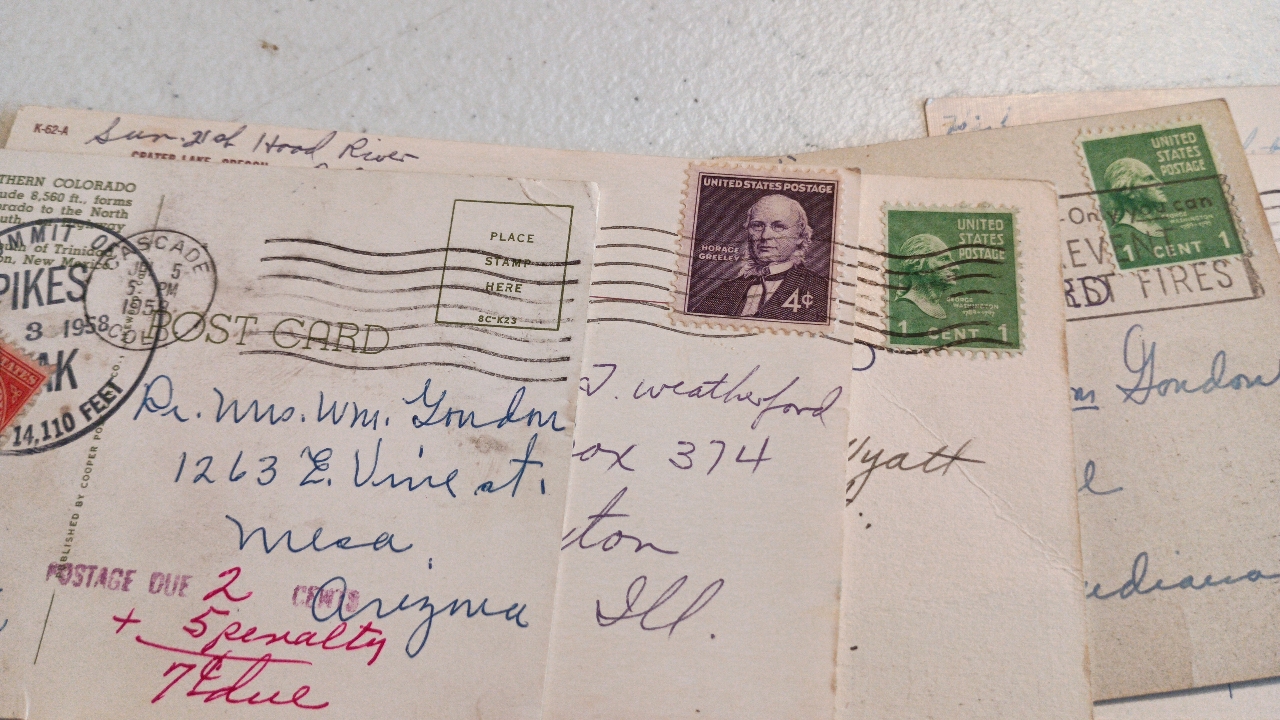 K-62-A
Sun. 21 of Hood River
CRATER LAKE, OREGON
THERN COLORADO
ude 8,560 ft., forms
orado to the North
outh
of Trinidad,
on, New Mexico.
SUMMIT OF
PIKES
3 1958
AK
14,110 FEET
CASCADE
5
PM
195
COLO
POST CARD
PLACE
STAMP
HERE
8C-K23
Dr. Mrs. Wm. Gordon
1263 E. Vine st.
Mesa,
Arizona
POSTAGE DUE 2 CENTS
+ 5 penalty
7¢ due
BLISHED BY COOPER PO
CO.,
UNITED STATES POSTAGE
HORACE
GREELEY
4¢
J. Weatherford
ox 374
ton
Ill.
UNITED
STATES
POSTAGE
GEORGE
WASHINGTON
1789-1797
1 CENT 1
yatt
UNITED
STATES
POSTAGE
1 CENT 1
Only you can
EVENT
FIRES
m Gordon
e
ndiana